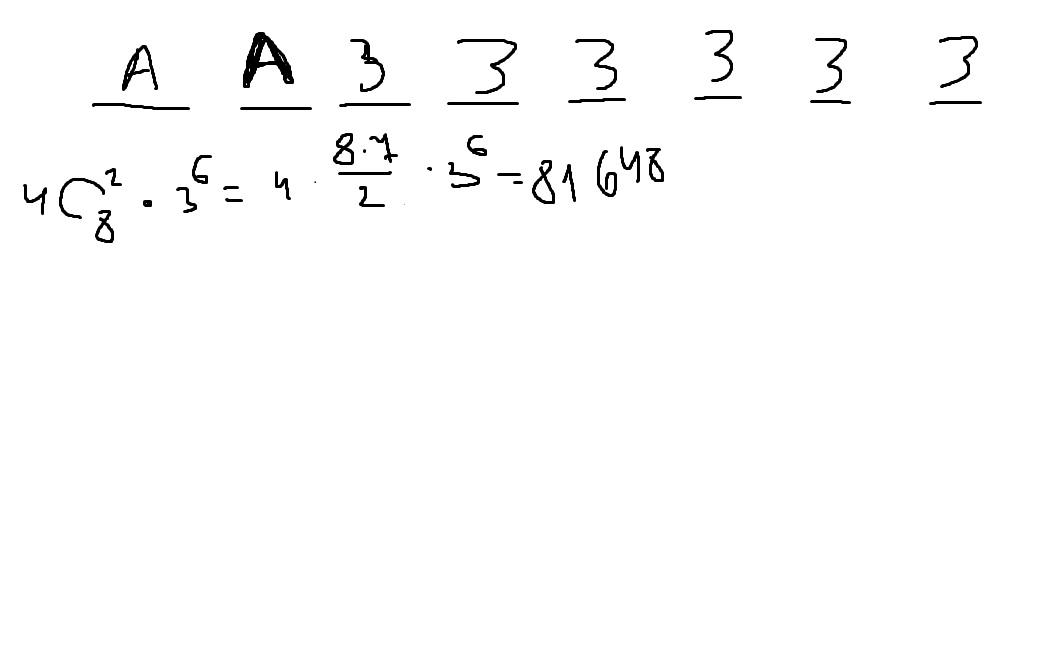 A A 3 3 3 3 3 3
4C₈² · 3⁶ = 4 · (8·7)/2 · 3⁶ = 81 648